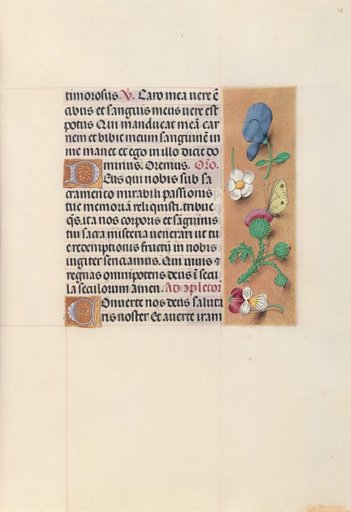 timorosus. V. Caro mea vere ē
cibus et sanguis meus vere est
potus Qui manducat meā car
nem et bibit meum sanguinē in
me manet et ego in illo dicit do
minus. Oremus. Oro.
Deus qui nobis sub sa
cramento mirabili passionis
tue memoriā reliquisti. tribue
qs. ita nos corporis et sāguinis
tui sacra misteria venerari ut tu
e redemptionis fructū in nobis
iugiter senciamus. Qui vivis et
regnas omnipotens deus in secu
la seculorum amen. Ad opletori
Converte nos deus saluta
ris noster Et averte iram